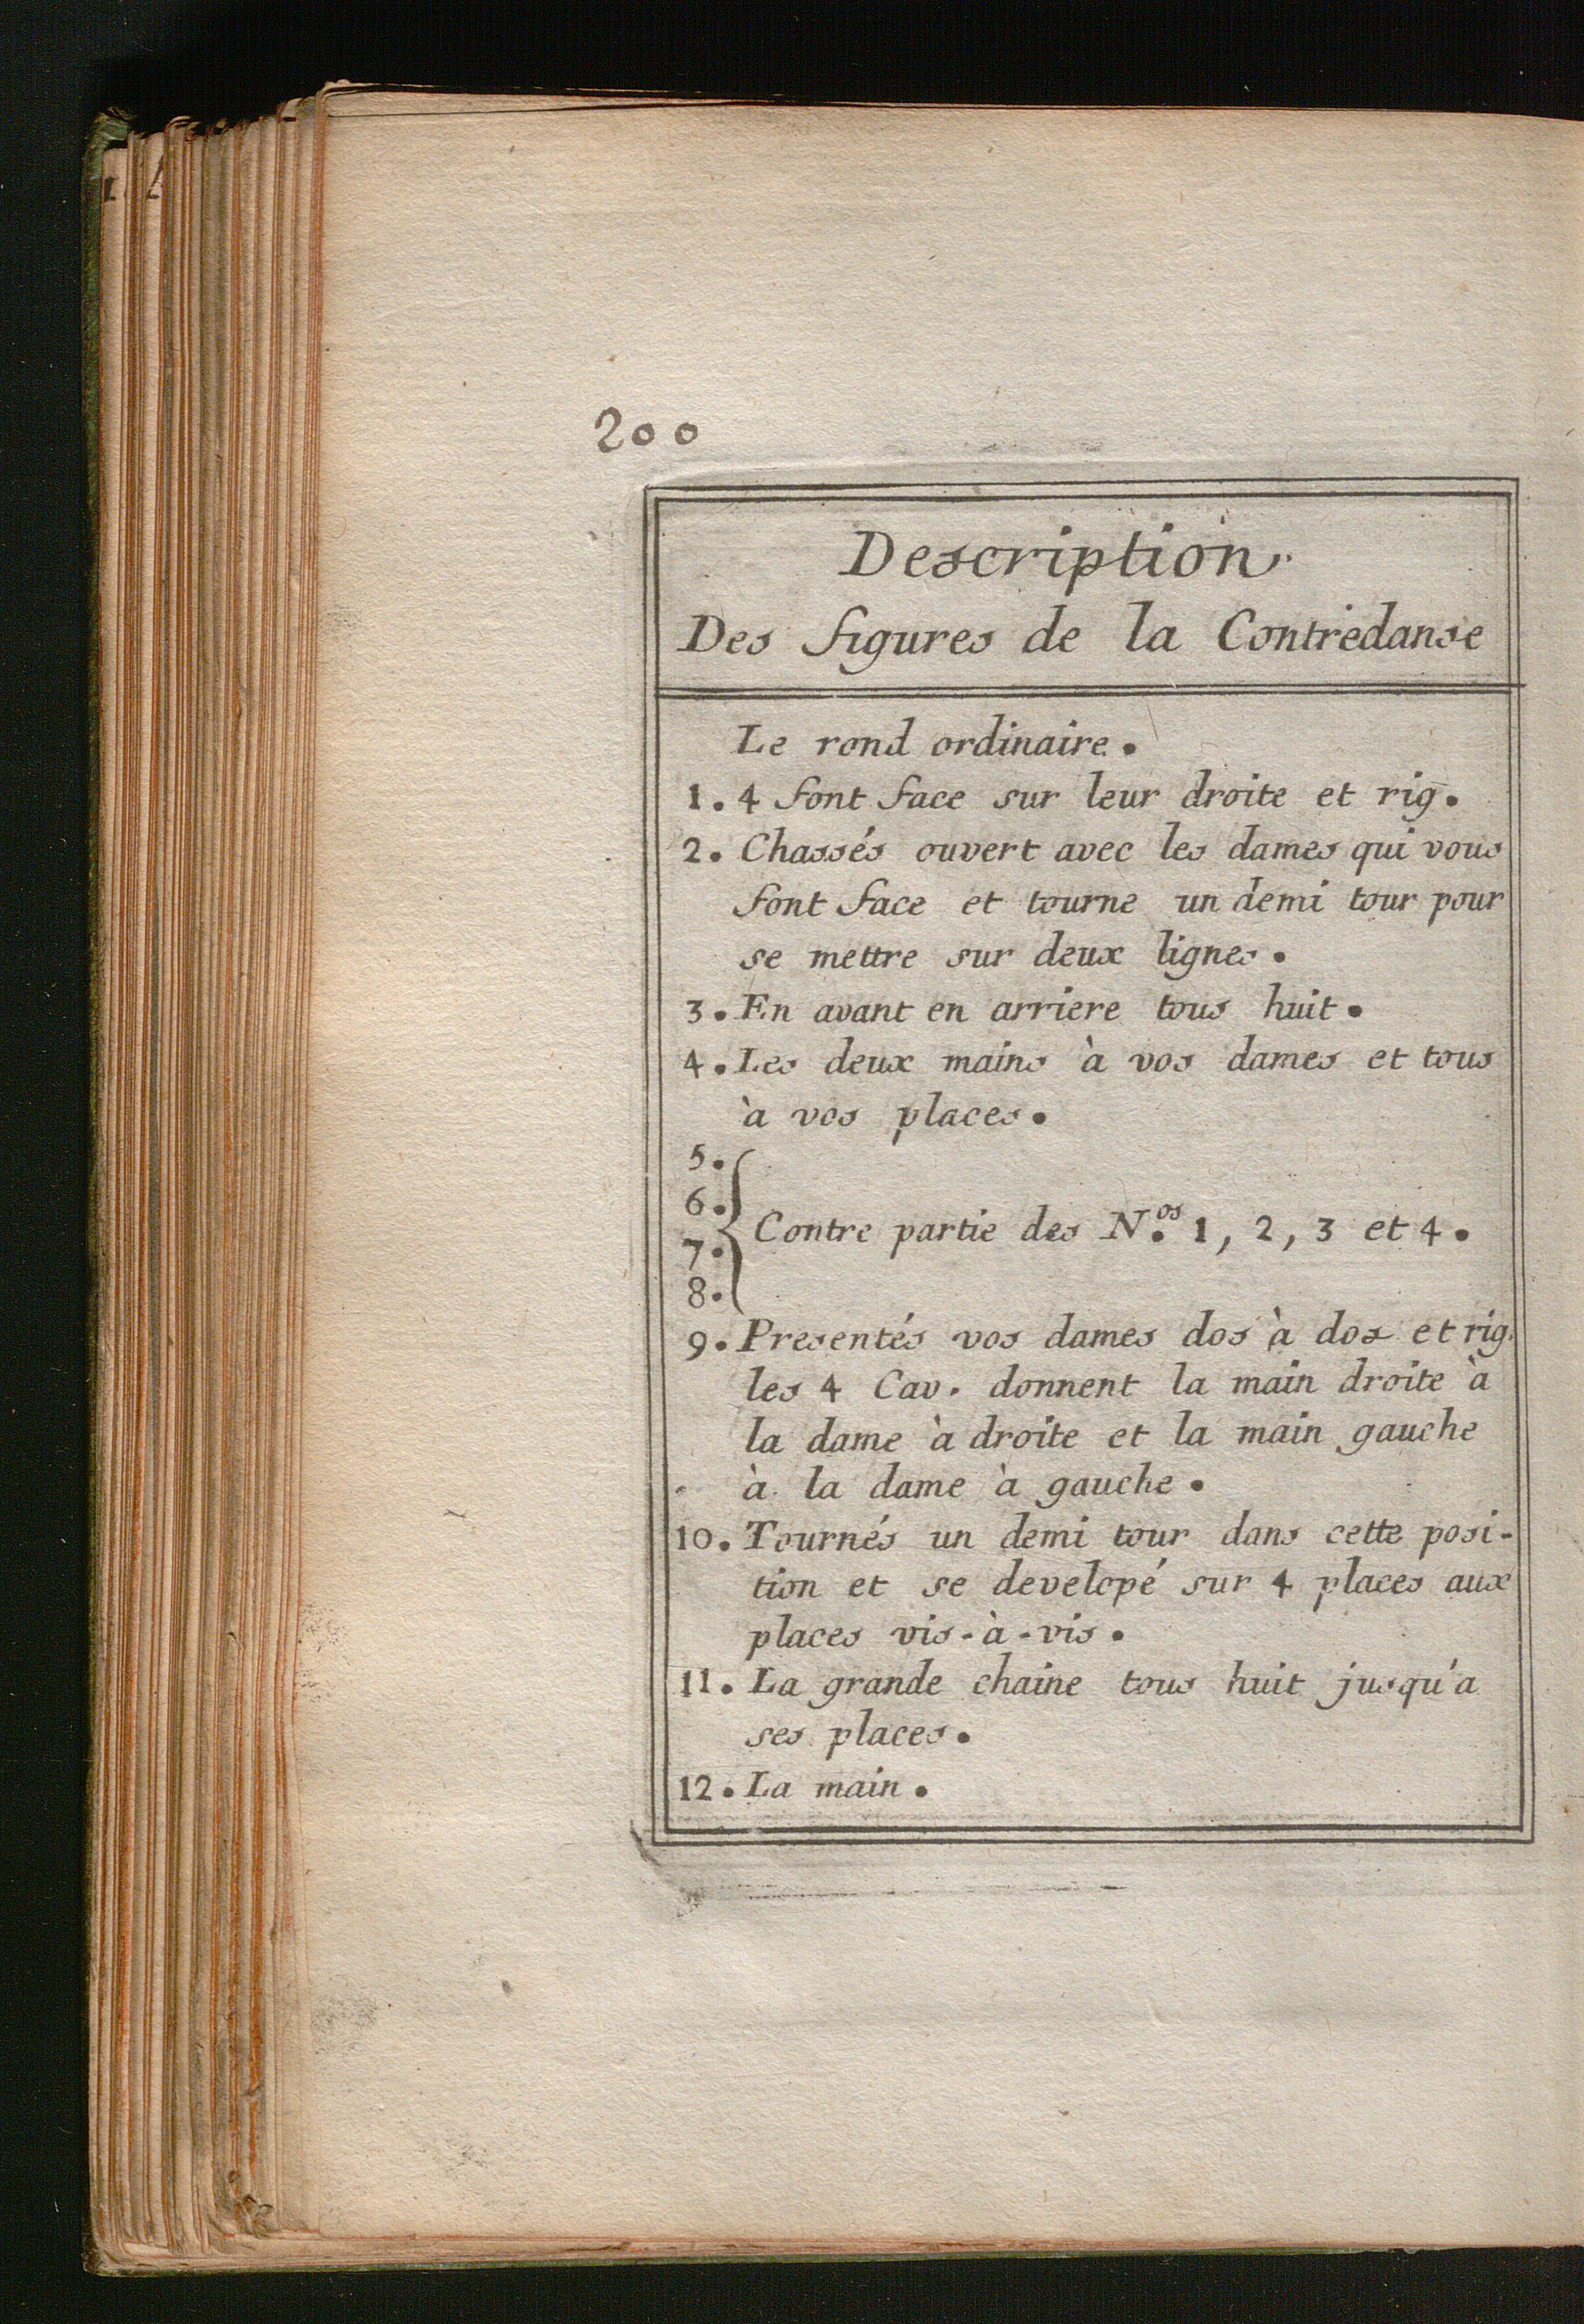 200
Description.
Des figures de la Contredanse
Le rond ordinaire.
1. 4 font face sur leur droite et rig.
2. Chassés ouvert avec les dames qui vous
font face et tourne un demi tour pour
se mettre sur deux lignes.
3. En avant en arriere tous huit.
4. Les deux mains à vos dames et tous
à vos places.
5.
6.
7.
8.
Contre partie des N.os 1, 2, 3 et 4.
9. Presentés vos dames dos à dos et rig.
les 4 Cav. donnent la main droite à
la dame à droite et la main gauche
à la dame à gauche.
10. Tournés un demi tour dans cette posi-
tion et se developé sur 4 places aux
places vis-à-vis.
11. La grande chaine tous huit jusqu'a
ses places.
12. La main.